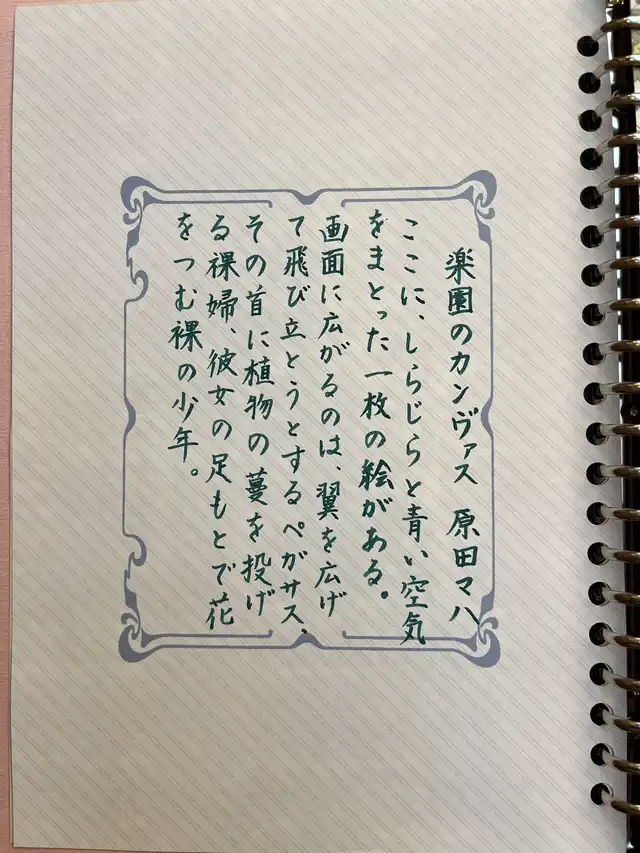 楽園のカンヴァス 原田マハ
ここに、しらじらと青い空気
をまとった一枚の絵がある。
画面に広がるのは、翼を広げ
て飛び立とうとするペガサス、
その首に植物の蔓を投げ
る裸婦、彼女の足もとで花
をつむ裸の少年。